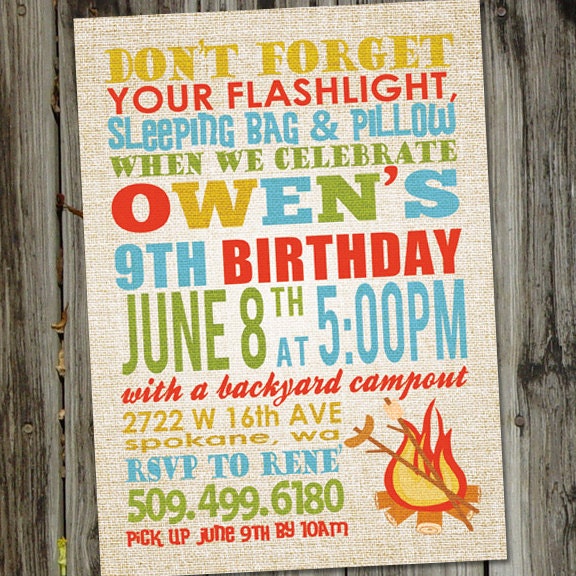 DON'T FORGET
YOUR FLASHLIGHT,
SLEEPING BAG & PILLOW
WHEN WE CELEBRATE
OWEN'S
9TH BIRTHDAY
JUNE 8TH AT 5:00PM
with a backyard campout
2722 W 16th AVE
spokane, wa
RSVP TO RENE'
509.499.6180
PICK UP JUNE 9TH BY 10AM